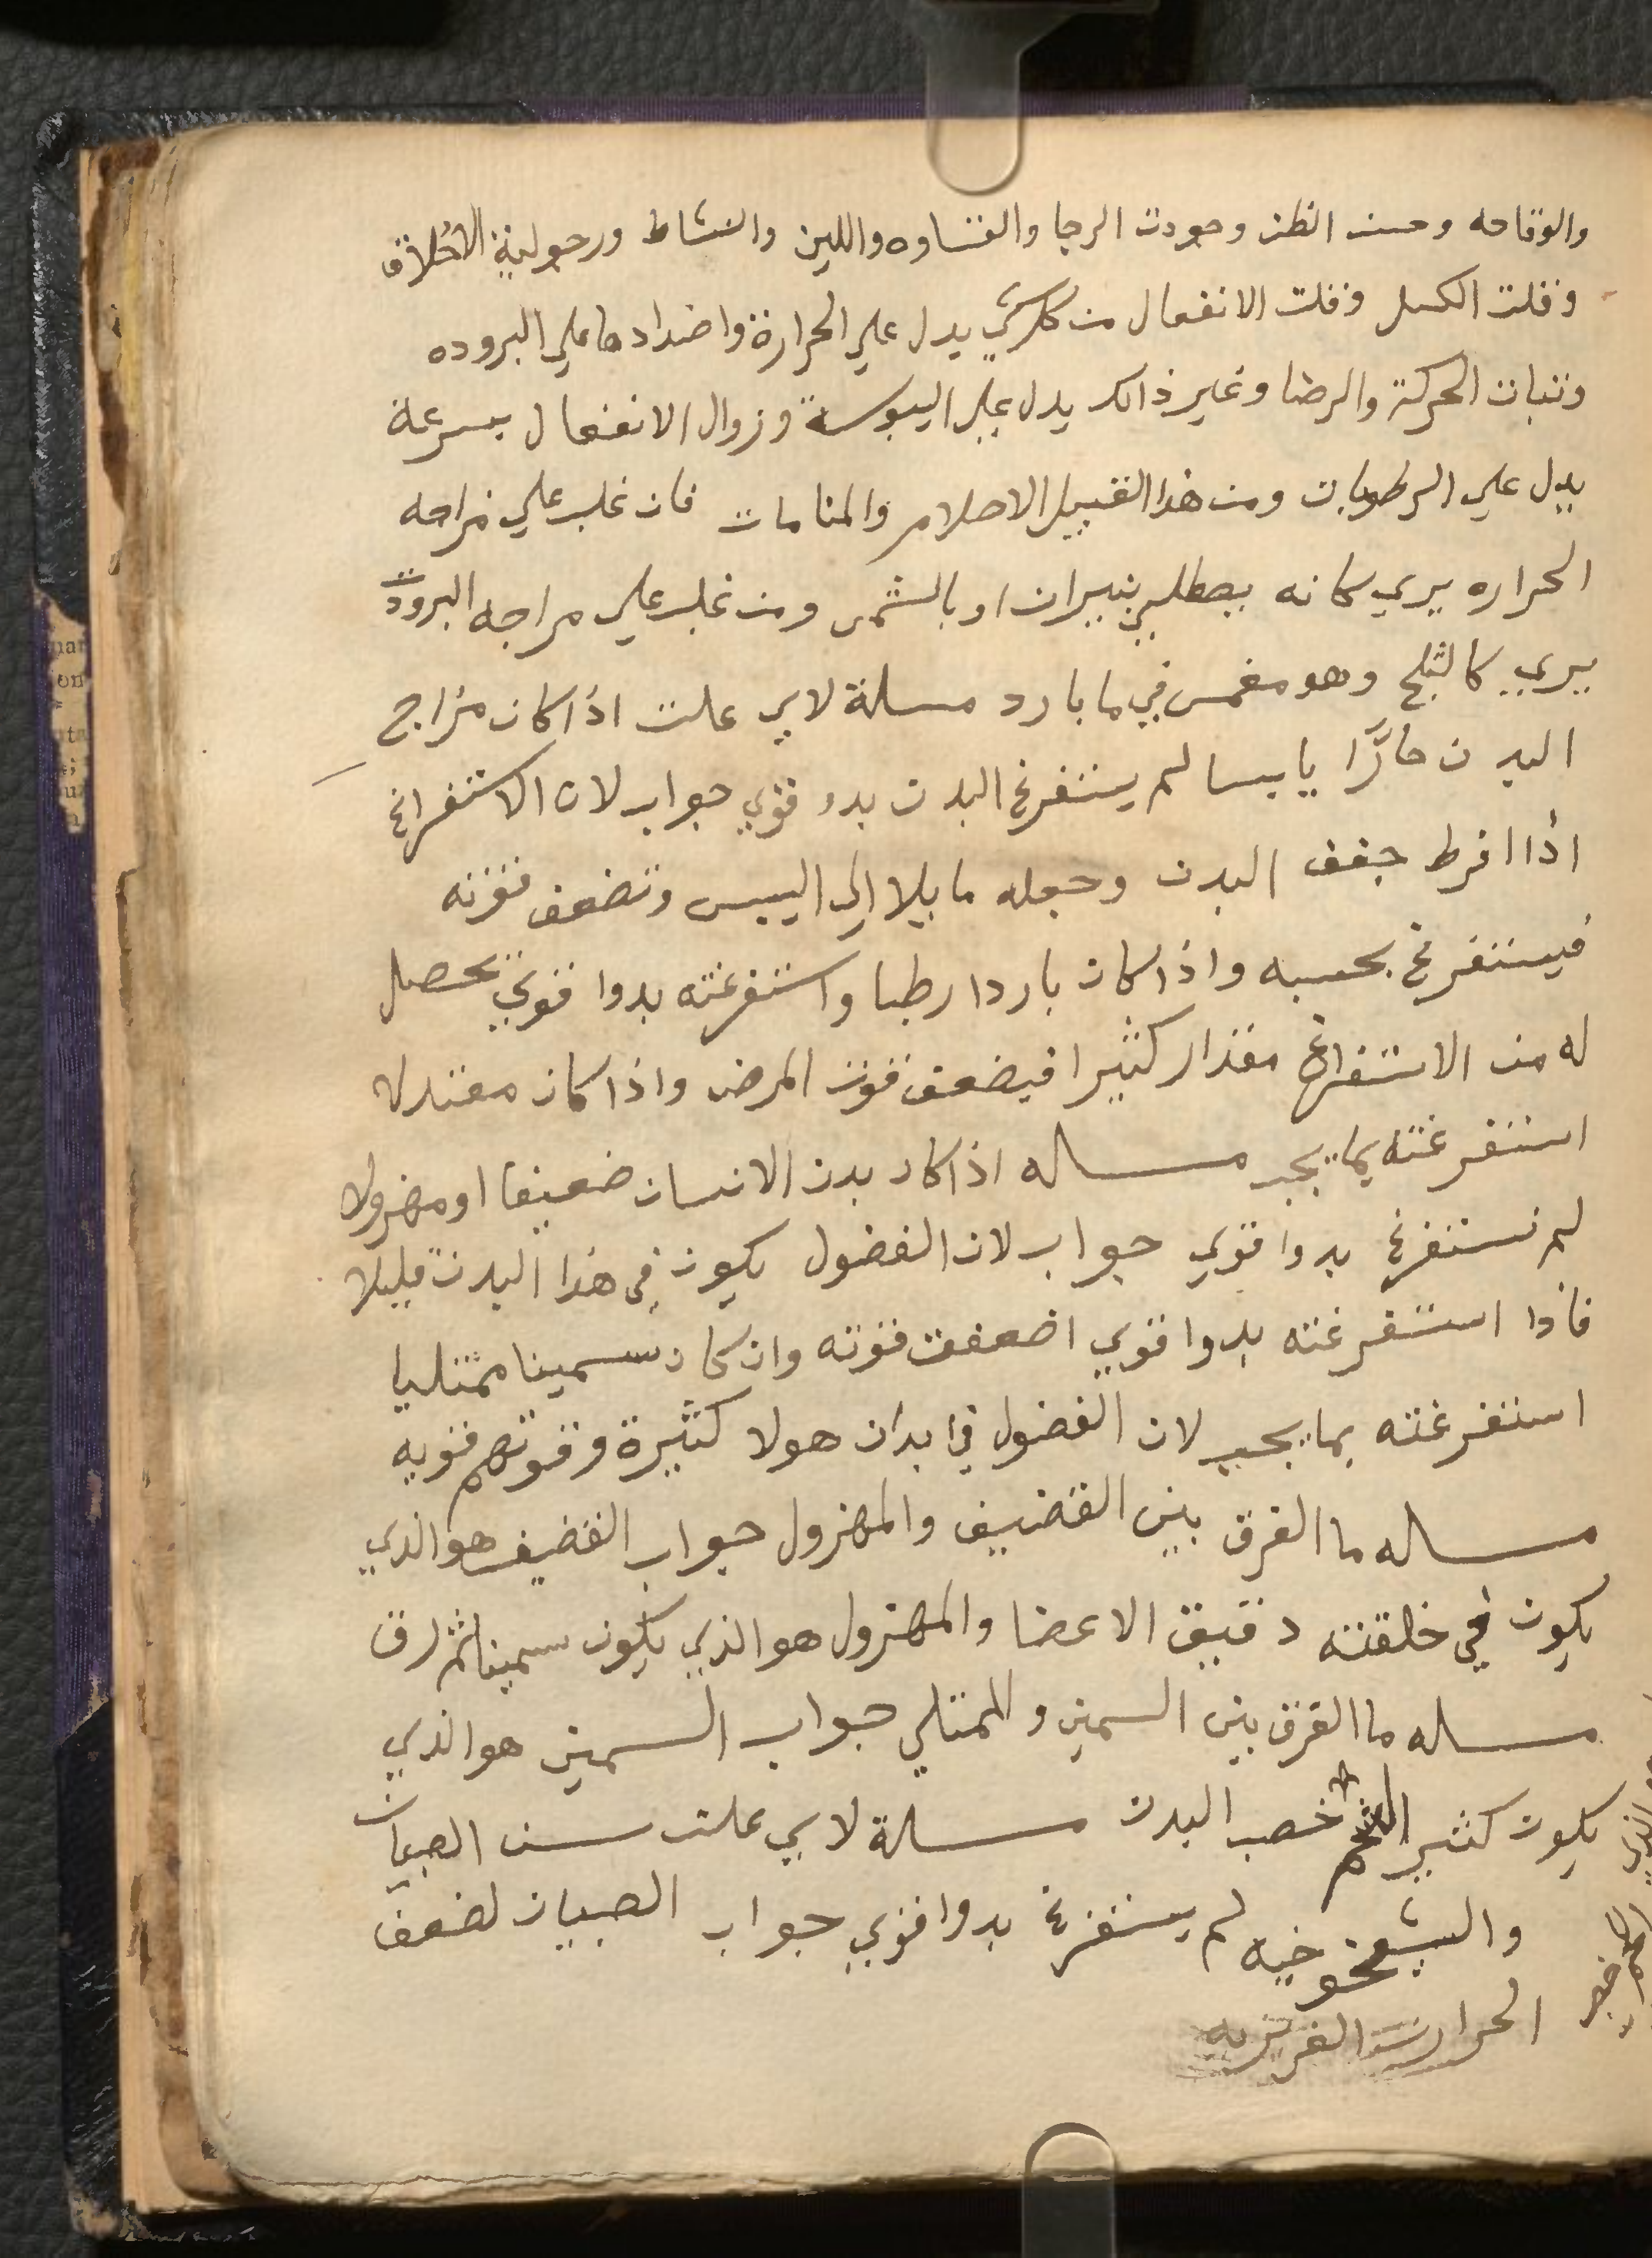 والوقاحه وحسن الظن وجودت الرجا والقساوه واللين والنشاط ورجولية الاخلاق
وقلت الكسل وقلت الانفعال من كل شي يدل علي الحرارة واضدادها علي البروده
وثبات الحركة والرضا وغير ذالك يدل علي اليبوسة وزوال الانفعال بسرعة
يدل علي الرطوبات ومن هذا القبيل الاحلام والمنامات فان غلب علي مزاجه
الحراره يري كانه يصطلي بنيران او بالشمس ومن غلب علي مزاجه البرودت
يري كالثلج وهو مغمس في ما بارد مسلة لاي علت اذا كان مزاج
البدن حارًا يابسا لم يستفرغ البدن بدو قوي جواب لان الاستفراغ
اذا افرط جفف البدن وجعله مايلا الي اليبس وتضعف قوته
فيستفرغ بحسبه واذا كان باردا رطبا واستفرغته بدوا قوي يحصل
له من الاستفراغ مقدار كثيرا فيضعف قوت المرض واذا كان معتدلا
استفرغته بما يجب مساله اذا كان بدن الانسان ضعيفا او مهزولا
لم نستفرغ بدوا قوي جواب لان الفضول يكون في هذا البدن قليلا
فاذا استفرغته بدوا قوي اضعفت قوته وان كان سمينا ممتليا
استفرغته بما يجب لان الفضول في ابدان هولا كثيرة وقوتهم قويه
مساله ما الفرق بين القضيف والمهزول جواب القضيف هو الذي
يكون في خلقته دقيق الاعضا والمهزول هو الذي يكون سمينا ثم رق
مساله ما الفرق بين السمين والممتلي جواب السمين هو الذي
يكون كثير الشحم خصب البدن مسلة لاي علت سن الصبيان
والشيخوخيه لم يستفرغ بدوا قوي جواب الصبيان لضعف
الحرارت الغريزيه